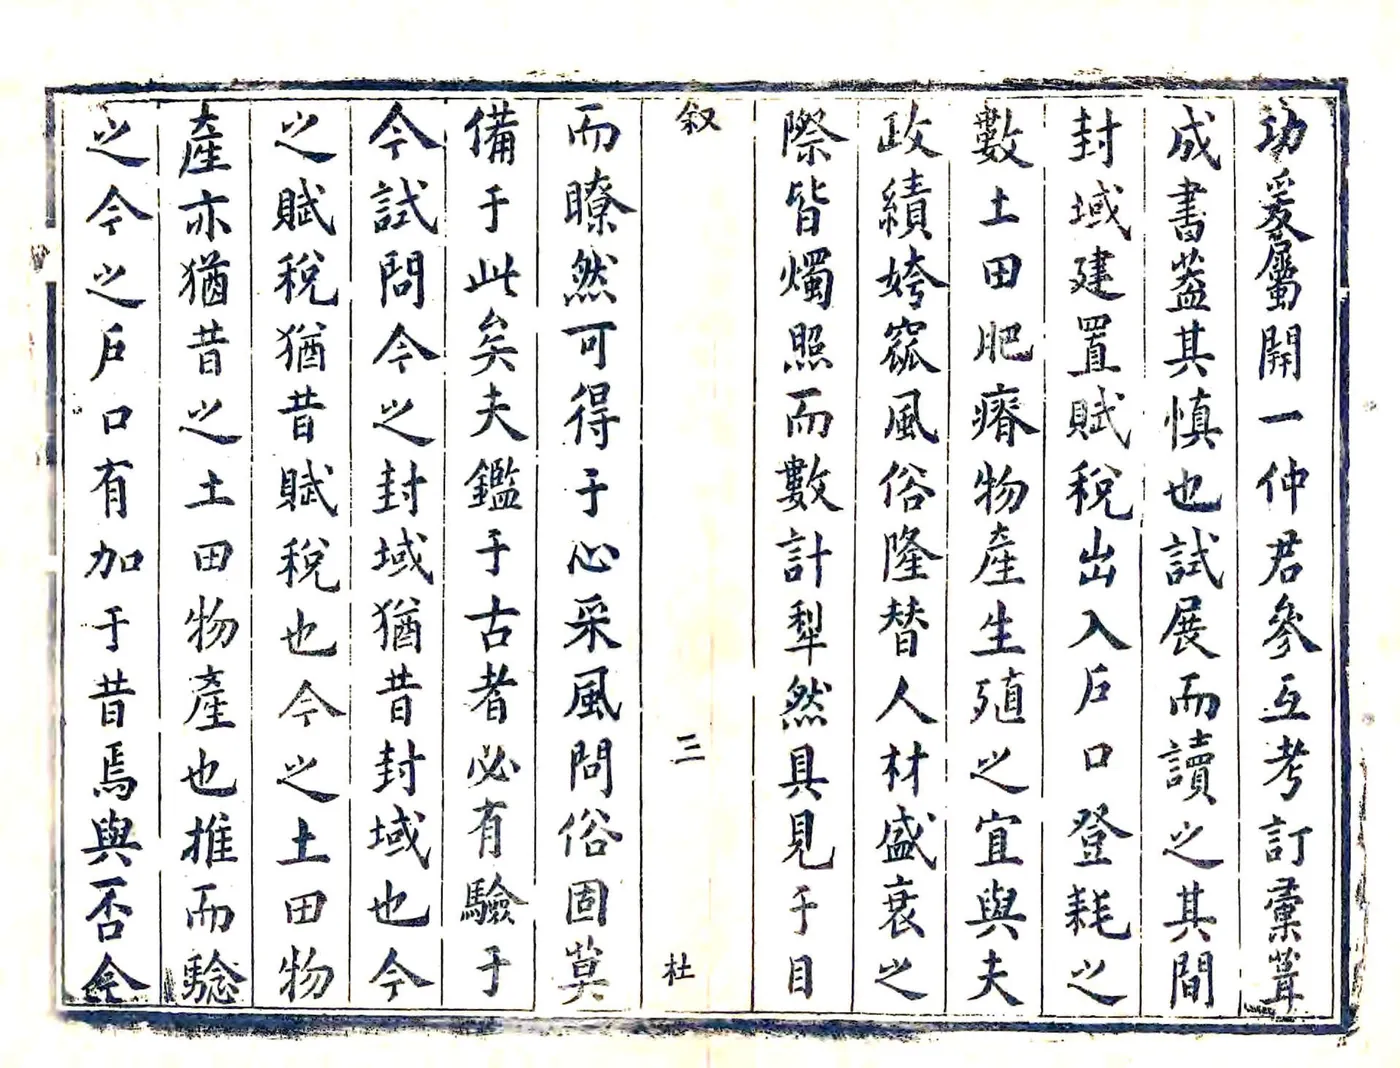 功爰屬開一仲君參互考訂彙葺
成書葢其慎也試展而讀之其間
封域建置賦稅出入戶口登耗之
數土田肥瘠物產生殖之宜與夫
政績姱窳風俗隆替人材盛衰之
際皆燭照而數計犁然具見于目
叙
三
杜
而瞭然可得于心采風問俗固莫
備于此矣夫鑑于古者必有驗于
今試問今之封域猶昔封域也今
之賦稅猶昔賦稅也今之土田物
產亦猶昔之土田物產也推而驗
之今之戶口有加于昔焉與否今